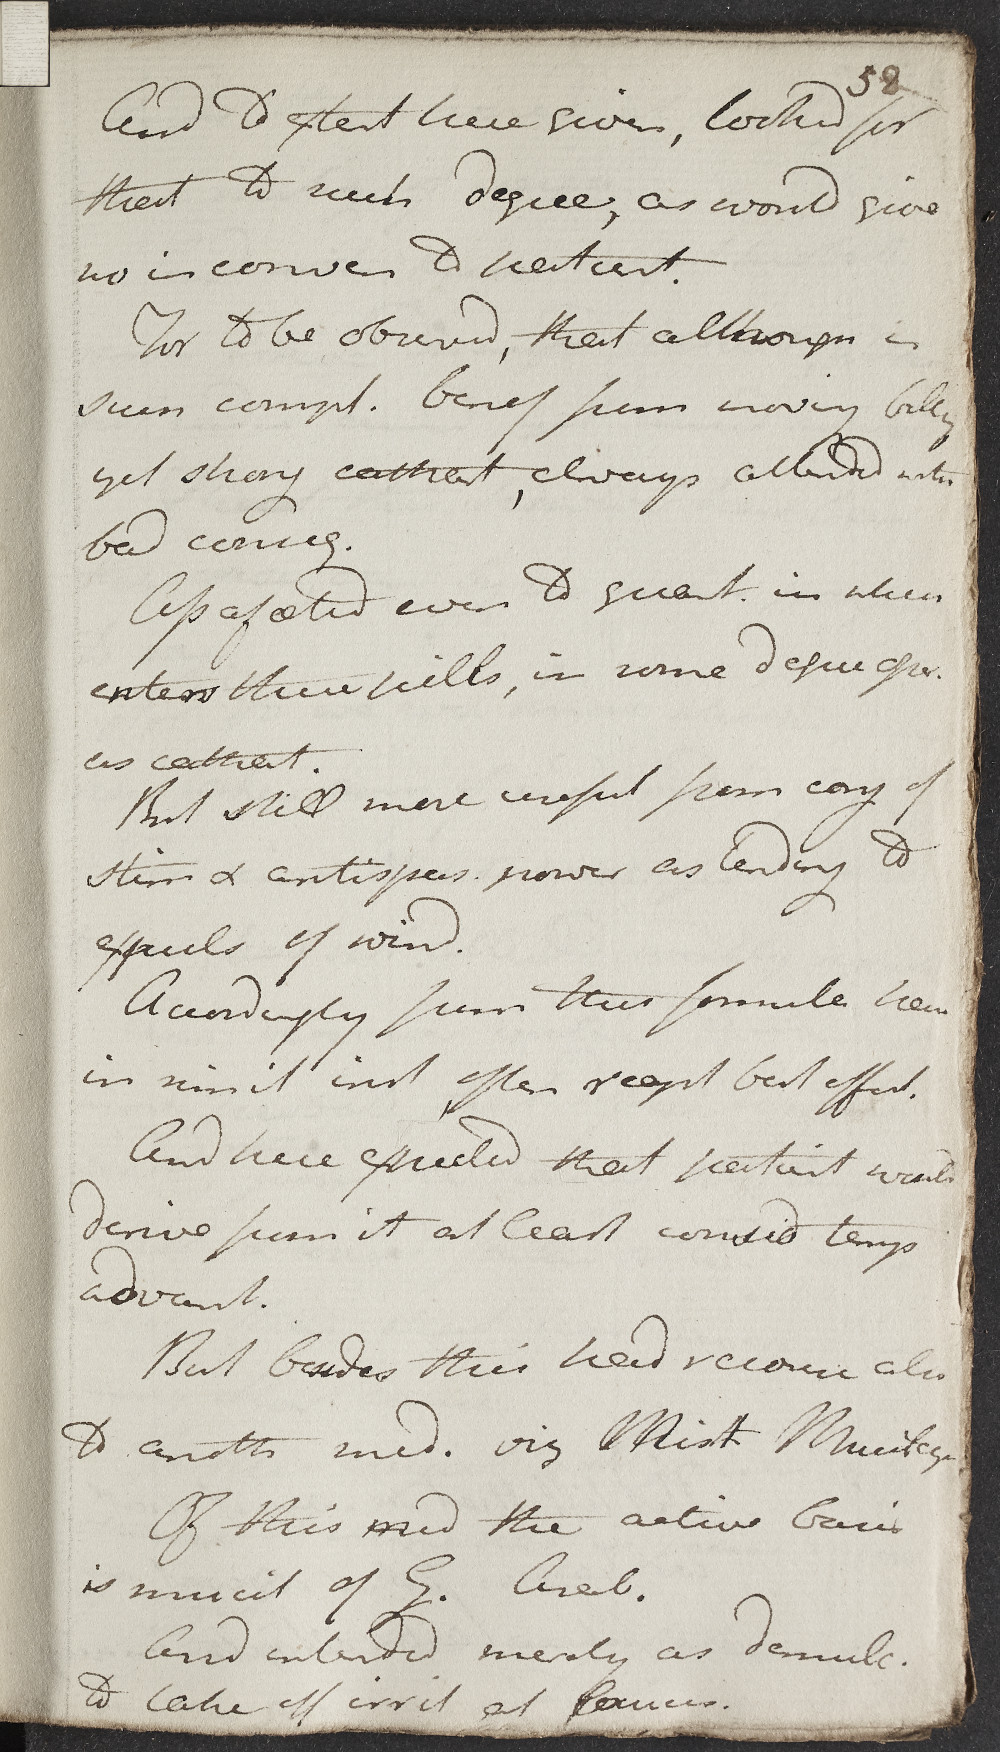 58
And to extent here given, looked for
that to such degree, as would give
no inconven to patient.
For to be observed, that although in
such compl. benef from moving belly
yet strong cathart, always attended with
bad conseq.
Assafœtid even to quant. in when
enters these pills, in some degree oper.
as cathart.
But still more useful from conj of
stim & antispas. power as tending to
expuls of wind.
Accordingly from this formula have
in simil inst often recept best effect.
And here expected that patient would
derive from it at least consid temp
advant.
But besides this had recourse also
to anoth med. viz Mist Mucilag
Of this med the active basis
is mucil of G. Arab.
And intended merely as demulc.
to take off irrit at fauces.